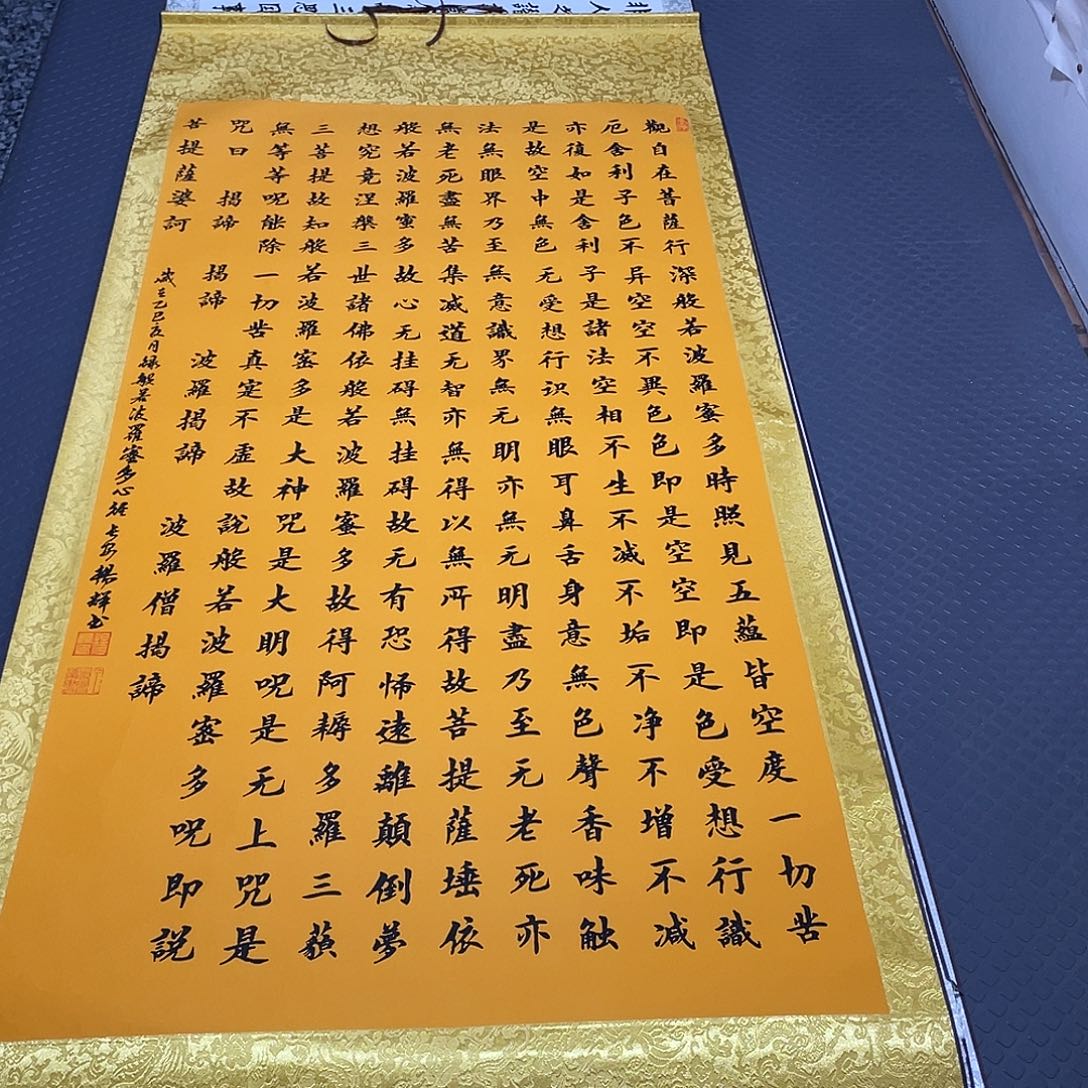 觀自在菩薩行深般若波羅蜜多時照見五蘊皆空度一切苦
厄舍利子色不异空空不異色色即是空空即是色受想行識
亦復如是舍利子是諸法空相不生不滅不垢不净不增不减
是故空中無色无受想行识無眼耳鼻舌身意無色聲香味触
法無眼界乃至無意識界無无明亦無无明盡乃至无老死亦
無老死盡無苦集滅道无智亦無得以無所得故菩提薩埵依
般若波羅蜜多故心无挂碍無挂碍故无有恐怖遠離顛倒夢
想究竟涅槃三世諸佛依般若波羅蜜多故得阿耨多羅三藐
三菩提故知般若波羅蜜多是大神咒是大明呪是无上咒是
無等等呪能除一切苦真寔不虚故説般若波羅蜜多呪即説
咒曰 揭諦 揭諦 波羅揭諦 波羅僧揭諦
菩提薩婆訶
歲在乙巳夏月錄般若波羅蜜多心經長安楊輝书